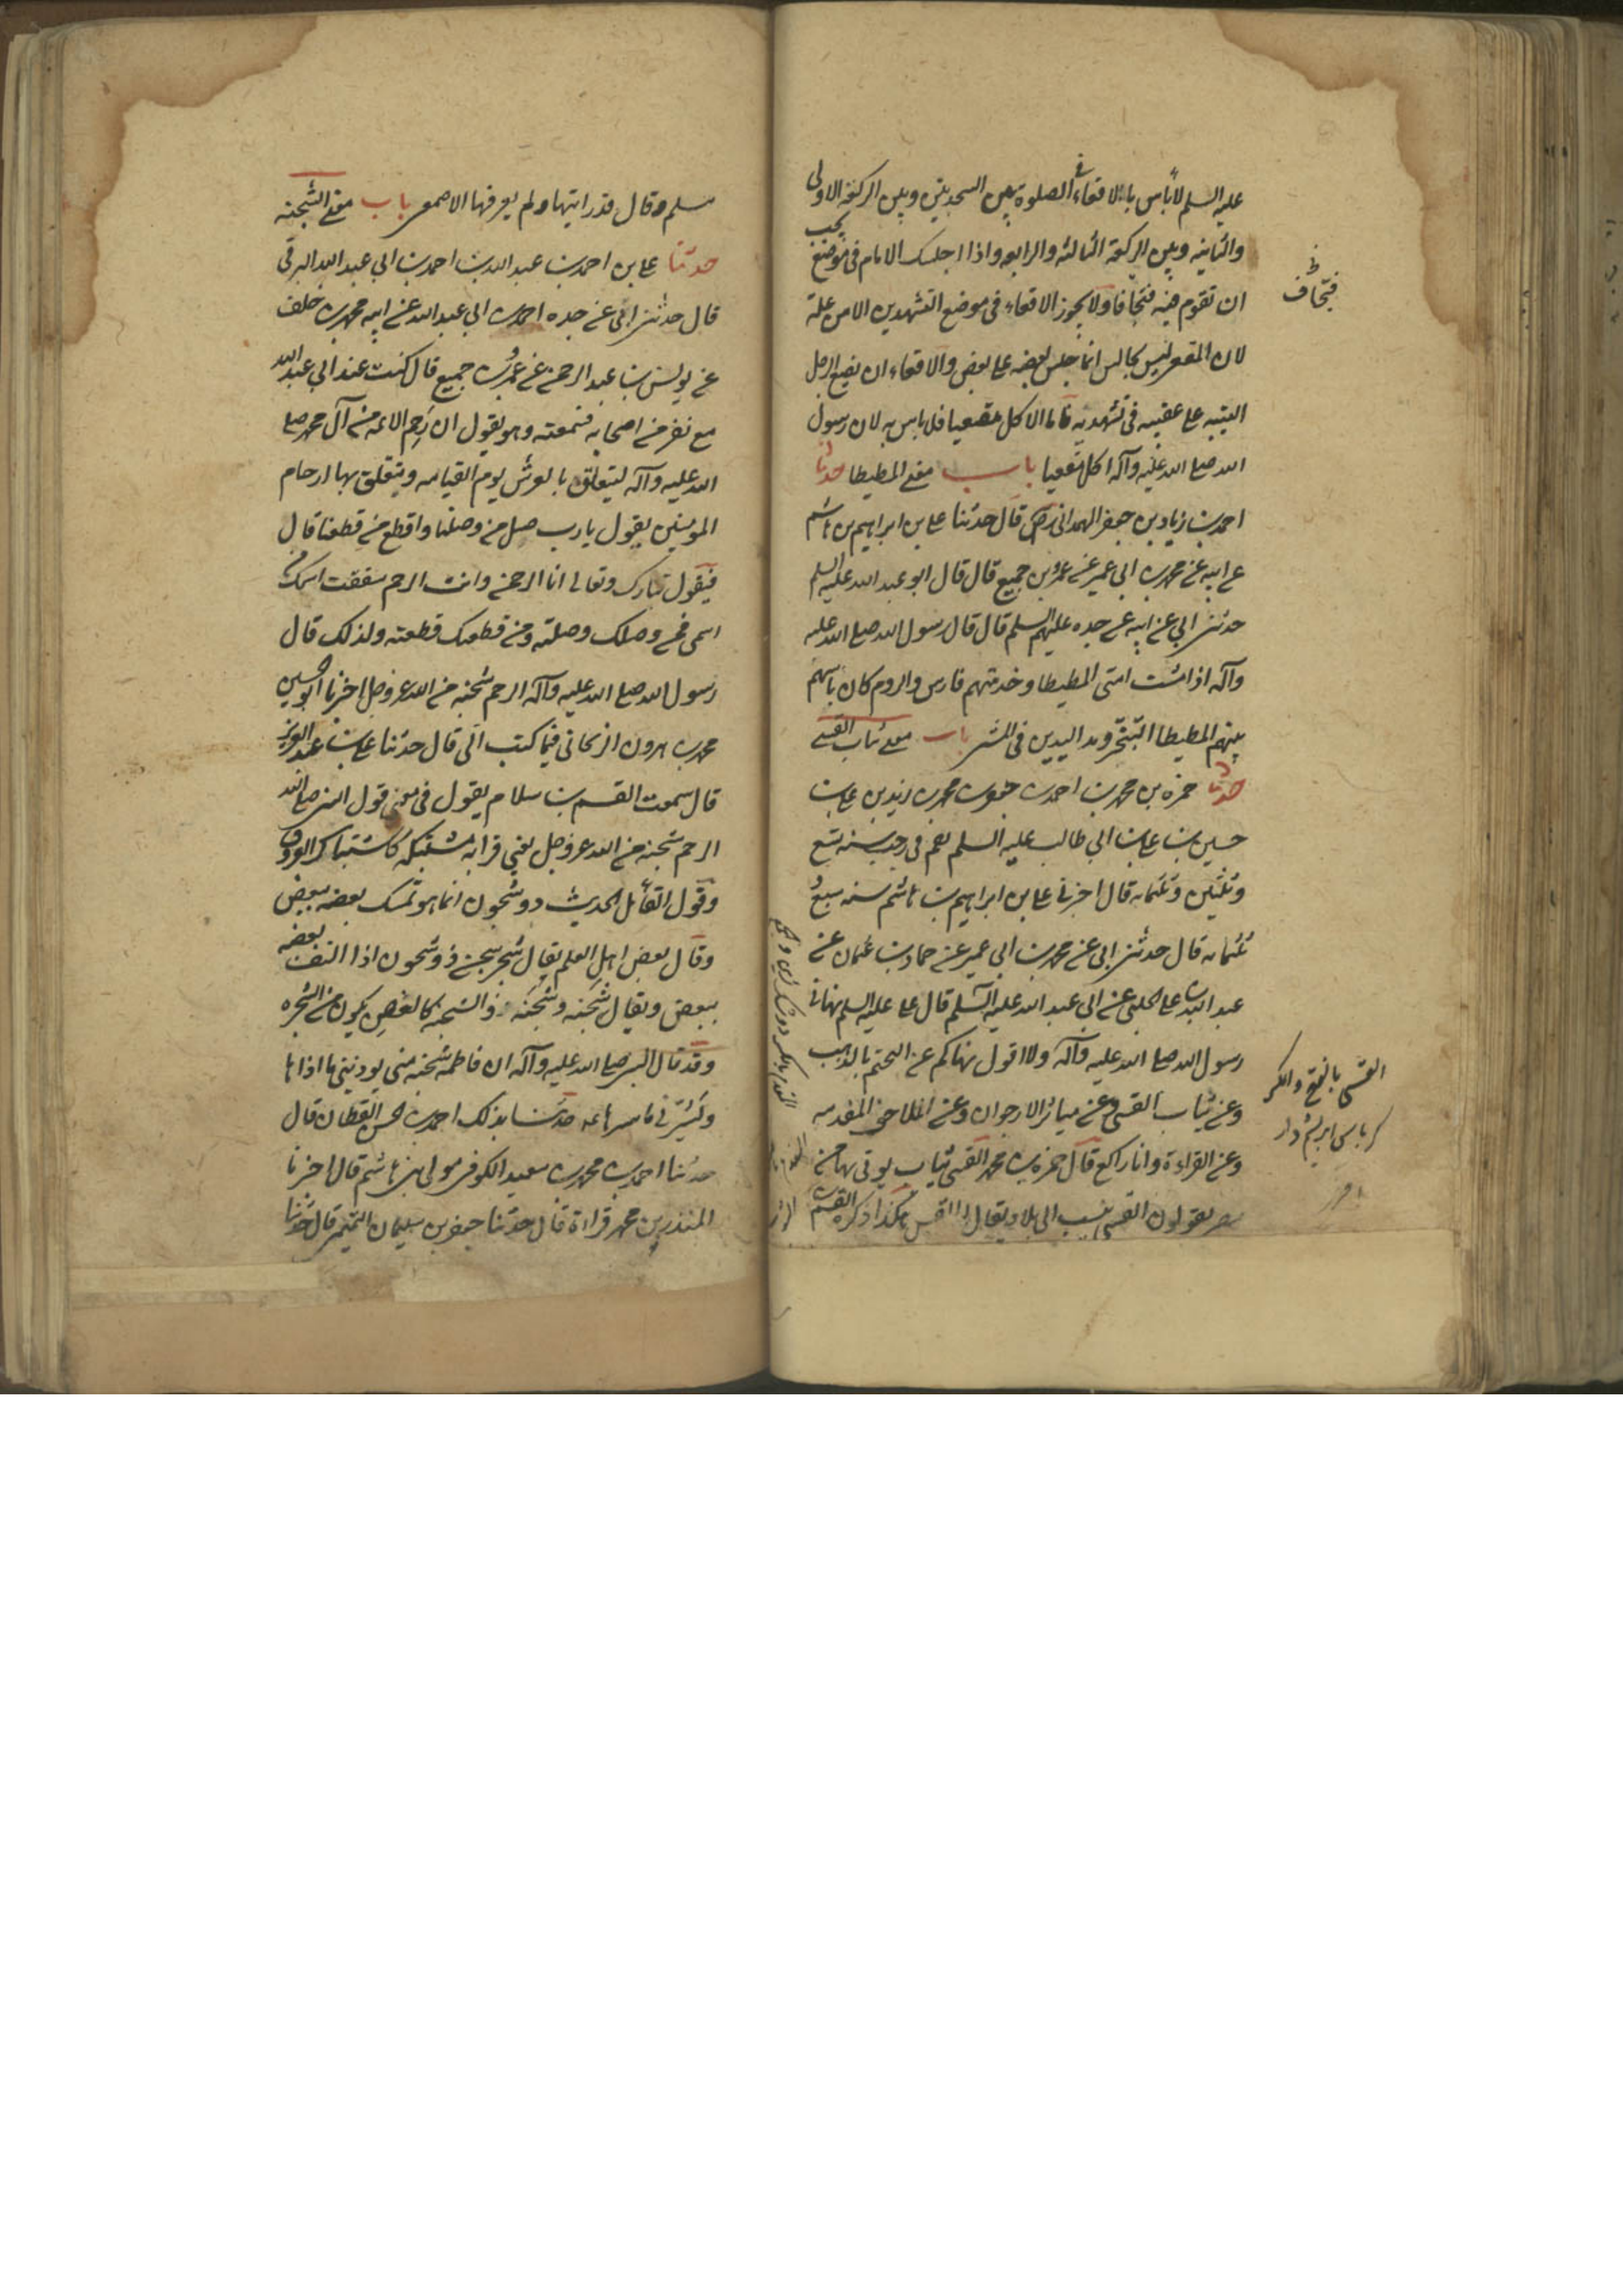 عليه السلم لا بأس بالاقعاء في الصلوة بين السجدتين وبين الركعة الاولى
والثانيه وبين الركعة الثالثه والرابعه واذا اجلسك الامام في موضع يجب
ان تقوم فيه فتجافا ولا يجوز الاقعاء في موضع التشهدين الا من علة
لان المقعى ليس بجالس انما جلس بعضه على بعض والاقعاء ان يضع الرجل
اليتيه على عقبيه في تشهديه فاما الاكل مقعيا فلا باس به لان رسول
الله صلى الله عليه وآله اكل مقعيا باب معنى المطيطا حدثنا
احمد بن زياد بن جعفر الهمداني رض قال حدثنا على بن ابراهيم بن هاشم
عن ابيه عن محمد بن ابي عمير عن عمرو بن جميع قال قال ابو عبد الله عليه السلم
حدثني ابي عن ابيه عن جده عليهم السلم قال قال رسول الله صلى الله عليه
وآله اذا مشت امتى المطيطا وخدمتهم فارس والروم كان باسهم
بينهم المطيطا التبختر ومد اليدين في المشى باب معنى ثياب القسى
حدثنا حمزه بن محمد بن احمد بن جعفر بن محمد بن زيد بن على بن
حسين بن على بن ابي طالب عليه السلم بقم في رجب سنه تسع
وثلثين وثلثمائه قال اخبرني على بن ابراهيم بن هاشم سنه سبع و
ثلثمائه قال حدثنى ابى عن محمد بن ابى عمير عن حماد بن عثمان عن
عبد الله بن على الحلبى عن ابى عبد الله عليه السلم قال على عليه السلم نهانى
رسول الله صلى الله عليه وآله ولا اقول نهاكم عن التختم بالذهب
وعن ثياب القسى وعن مياثر الارجوان وعن الملاحف المفدمه
وعن القراءة وانا راكع قال حمزه بن محمد القسى ثياب يوتى بها من
مصر يقولون القسى ينسب الى بلاد يقال لها القس هكذا ذكره القسم بن
فتجاف
القسى بالفتح والكسر
كرباس ابريشم دار
سلم وقال قد رايتها ولم يعرفها الاصمعى باب معنى الشجنه
حدثنا على بن احمد بن عبد الله بن احمد بن ابي عبد الله البرقى
قال حدثنى ابى عن جده احمد بن ابي عبد الله عن ابيه محمد بن خلف
عن يونس بن عبد الرحمن عن عمرو بن جميع قال كنت عند ابي عبد الله
مع نفر من اصحابه فسمعته وهو يقول ان رحم الائمه من آل محمد صلى
الله عليه وآله ليتعلق بالعرش يوم القيامه ويتعلق بها ارحام
المومنين يقول يا رب صل من وصلنا واقطع من قطعنا قال
فيقول تبارك وتعالى انا الرحمن وانت الرحم شققت اسمك من
اسمى فمن وصلك وصلته ومن قطعك قطعته ولذلك قال
رسول الله صلى الله عليه وآله الرحم شجنه من الله عز وجل اخبرنا ابو الحسين
محمد بن هرون الزنجانى فيما كتب الى قال حدثنا على بن عبد العزيز
قال سمعت القسم بن سلام يقول في معنى قول النبى صلى الله
الرحم شجنه من الله عز وجل يعنى قرابه مشتبكه كاشتباك العروق
وقول القائل الحديث ذو شجون انما هو تمسك بعضه ببعض
وقال بعض اهل العلم يقال شجر متشجن ذو شجون اذا التف بعضه
ببعض ويقال شجنه وشجنه والشجنه كالغصن يكون من الشجره
وقد قال النبى صلى الله عليه وآله ان فاطمه شجنه منى يوذينى ما اذاها
ويسرنى ما سرها عه حدثنا بذلك احمد بن الحسن القطان قال
حدثنا احمد بن محمد بن سعيد الكوفى مولى بنى هاشم قال اخبرنا
المنذر بن محمد قراءة قال حدثنا جعفر بن سليمان التميمى قال حدثنا